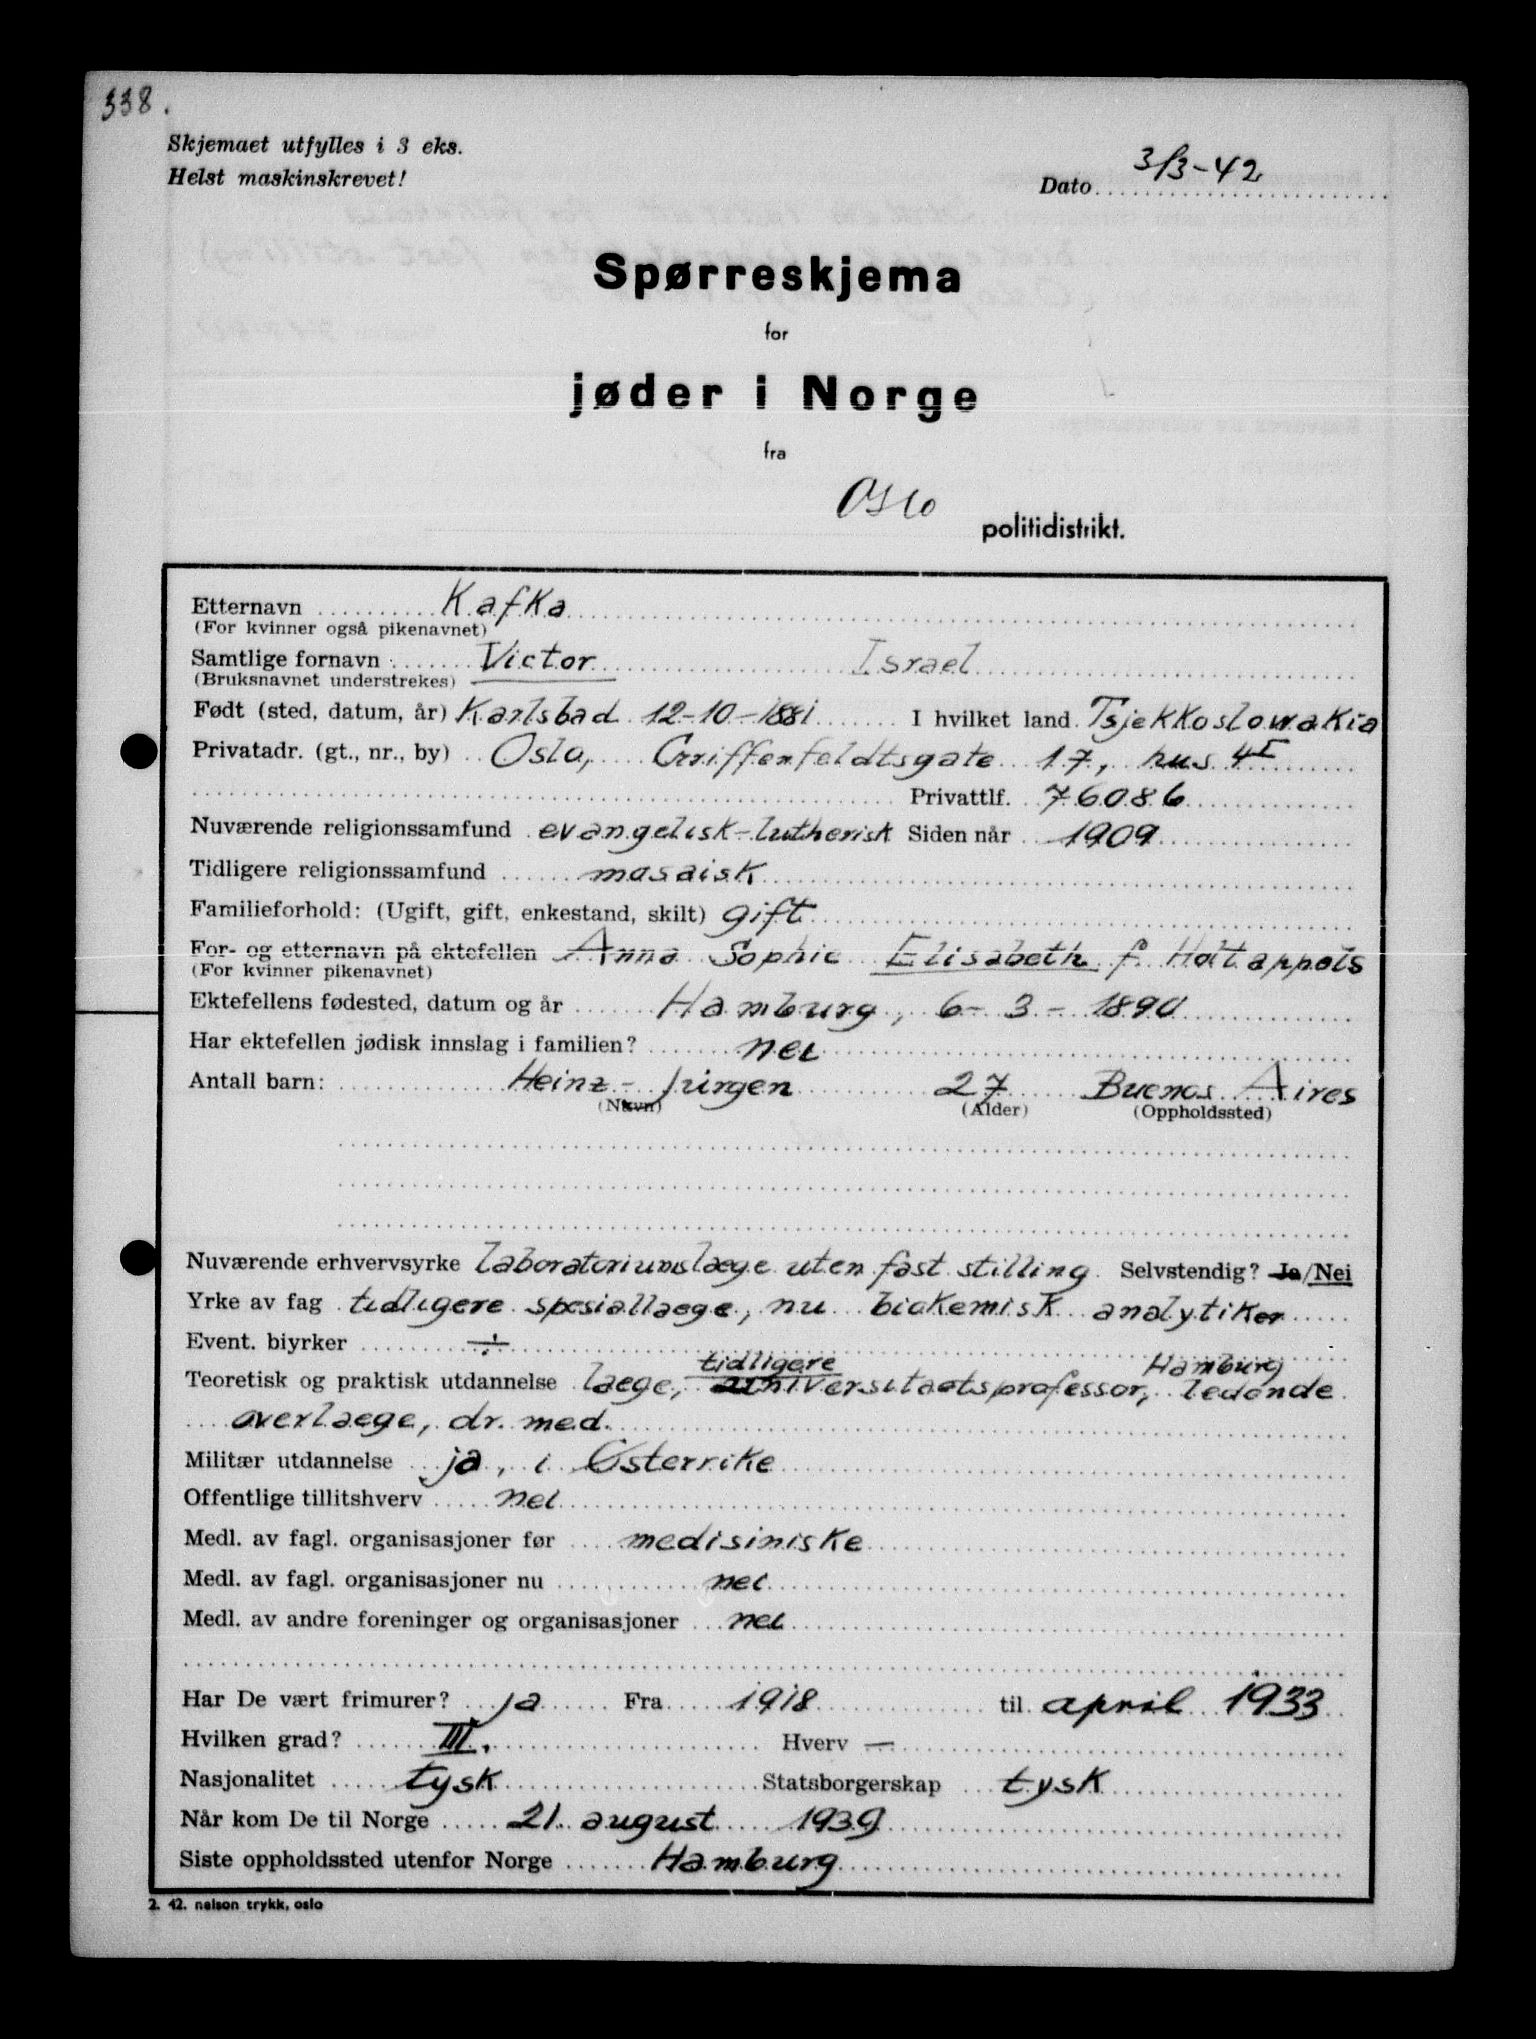 338.
Skjemaet utfylles i 3 eks.
Helst maskinskrevet!
Dato 3/3-42
Spørreskjema
for
jøder i Norge
fra
Oslo politidistrikt.
Etternavn Kafka
(For kvinner også pikenavnet)
Samtlige fornavn Victor Israel
(Bruksnavnet understrekes)
Født (sted, datum, år) Karlsbad 12-10-1881 I hvilket land Tsjekkoslowakia
Privatadr. (gt., nr., by) Oslo, Griffenfeldtsgate 17, hus 4 I
Privattlf. 76086
Nuværende religionssamfund evangelisk-lutherisk Siden når 1909
Tidligere religionssamfund mosaisk
Familieforhold: (Ugift, gift, enkestand, skilt) gift
For- og etternavn på ektefellen Anna Sophie Elisabeth f. Holtappels
(For kvinner pikenavnet)
Ektefellens fødested, datum og år Hamburg, 6-3-1890
Har ektefellen jødisk innslag i familien? nei
Antall barn: Heinz-Jürgen 27 Buenos Aires
(Navn) (Alder) (Oppholdssted)
Nuværende erhvervsyrke laboratoriumslæge uten fast stilling Selvstendig? Ja/Nei
Yrke av fag tidligere spesiallaege, nu biokemisk analytiker
Event. biyrker ÷
tidligere Hamburg
Teoretisk og praktisk utdannelse laege, universitaetsprofessor, ledende
overlaege, dr. med.
Militær utdannelse ja, i Østerrike
Offentlige tillitshverv nei
Medl. av fagl. organisasjoner før medisiniske
Medl. av fagl. organisasjoner nu nei
Medl. av andre foreninger og organisasjoner nei
Har De vært frimurer? ja Fra 1918 til april 1933
Hvilken grad? III. Hverv —
Nasjonalitet tysk Statsborgerskap tysk
Når kom De til Norge 21. august 1939
Siste oppholdssted utenfor Norge Hamburg
2. 42. nelson trykk, oslo